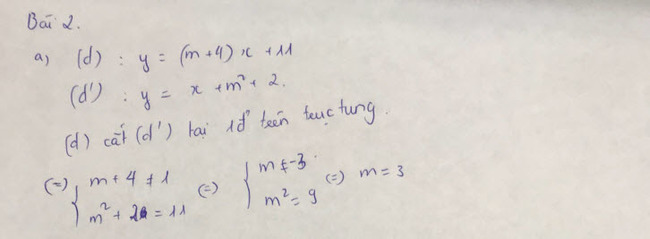 Bài 2.
a) (d) : y = (m+4) x + 11
(d') : y = x + m² + 2.
(d) cắt (d') tại 1đ trên trục tung.
(=) { m + 4 ≠ 1 (=) { m ≠ -3 (=) m = 3
m² + 2 = 11 m² = 9